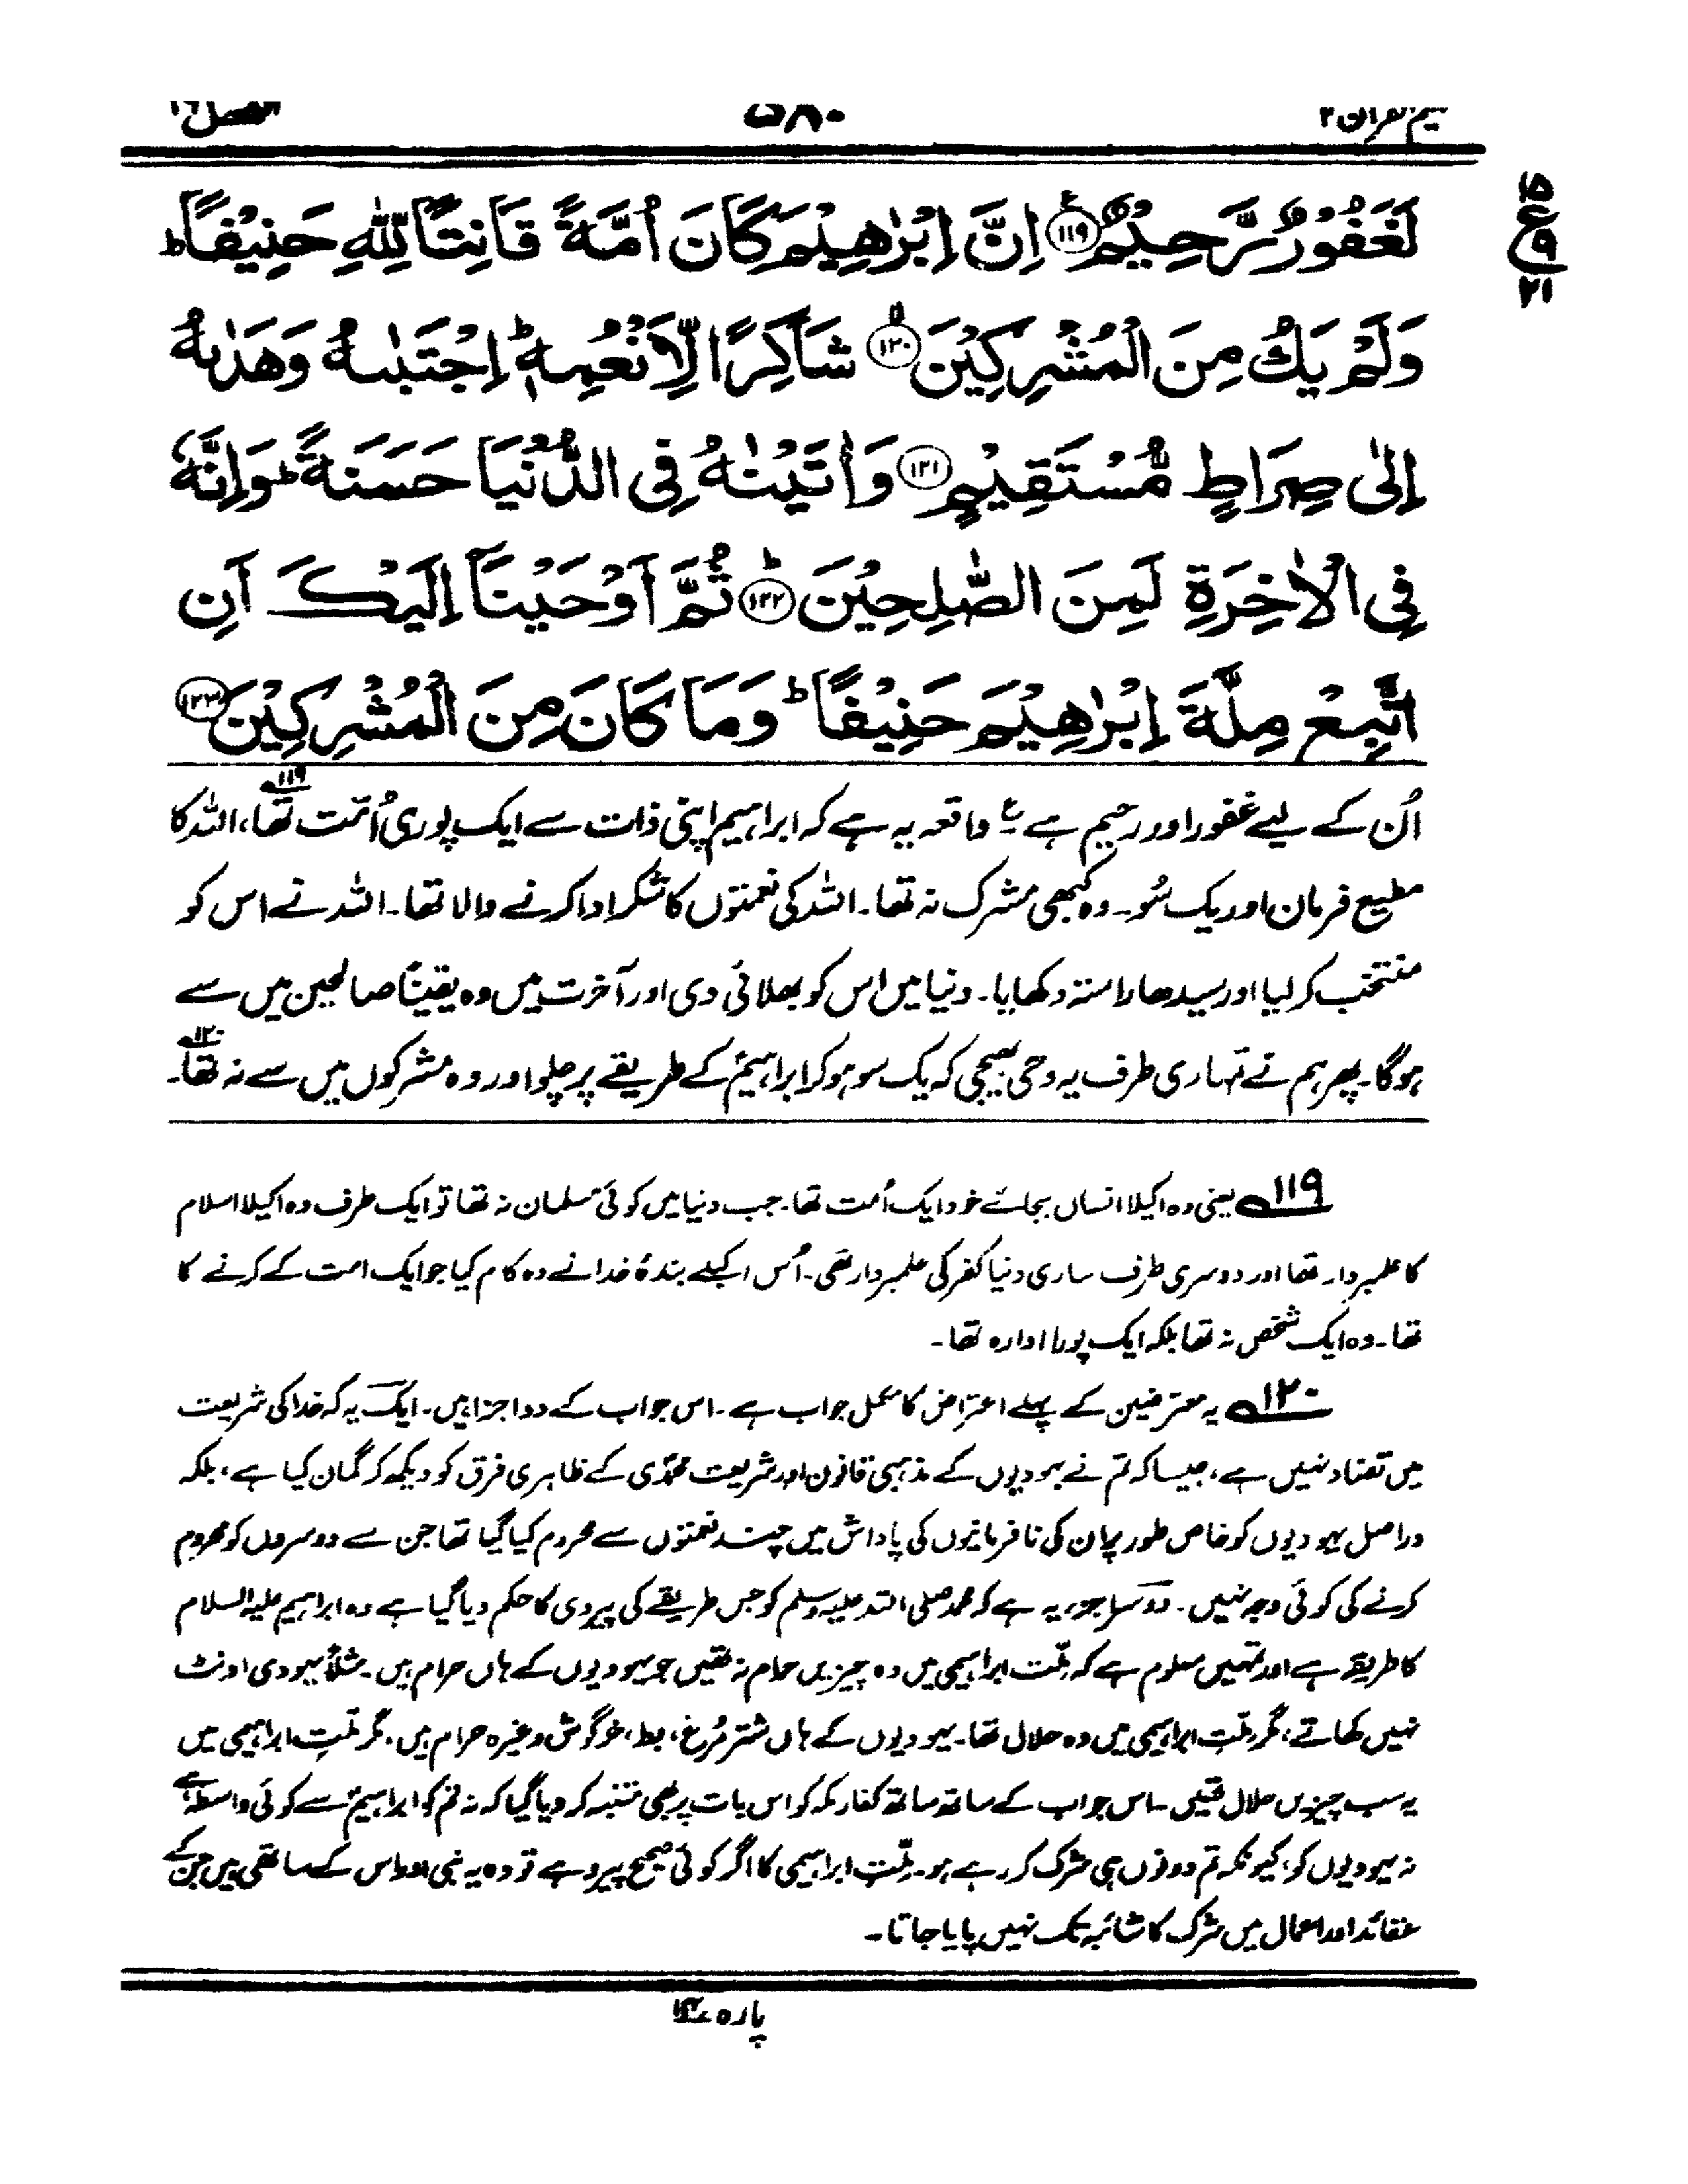 تفہیم القرآن ۲ ۵۸۰ النحل ۱۶
۱۵
ع
۹
۲۱
لَغَفُوْرٌ رَّحِیْمٌ ﴿۱۱۹﴾ اِنَّ اِبْرٰهِیْمَ كَانَ اُمَّةً قَانِتًا لِّلّٰهِ حَنِیْفًا ؕ
وَلَمْ یَكُ مِنَ الْمُشْرِكِیْنَ ﴿۱۲۰﴾ شَاكِرًا لِّاَنْعُمِهٖ ؕ اِجْتَبٰىهُ وَهَدٰىهُ
اِلٰی صِرَاطٍ مُّسْتَقِیْمٍ ﴿۱۲۱﴾ وَاٰتَیْنٰهُ فِی الدُّنْیَا حَسَنَةً ؕ وَاِنَّهٗ
فِی الْاٰخِرَةِ لَمِنَ الصّٰلِحِیْنَ ﴿۱۲۲﴾ ثُمَّ اَوْحَیْنَاۤ اِلَیْكَ اَنِ
اتَّبِعْ مِلَّةَ اِبْرٰهِیْمَ حَنِیْفًا ؕ وَمَا كَانَ مِنَ الْمُشْرِكِیْنَ ﴿۱۲۳﴾
اُن کے لیے غفور اور رحیم ہے ع واقعہ یہ ہے کہ ابراہیم اپنی ذات سے ایک پوری اُمّت تھا۱۱۹، اللہ کا
مطیعِ فرمان اور یک سُو۔ وہ کبھی مشرک نہ تھا۔ اللہ کی نعمتوں کا شکر ادا کرنے والا تھا۔ اللہ نے اس کو
منتخب کر لیا اور سیدھا راستہ دکھایا۔ دنیا میں اس کو بھلائی دی اور آخرت میں وہ یقیناً صالحین میں سے
ہوگا۔ پھر ہم نے تمہاری طرف یہ وحی بھیجی کہ یک سو ہو کر ابراہیمؑ کے طریقے پر چلو اور وہ مشرکوں میں سے نہ تھا۱۲۰۔
۱۱۹ یعنی وہ اکیلا انسان بجائے خود ایک اُمت تھا۔ جب دنیا میں کوئی مسلمان نہ تھا تو ایک طرف وہ اکیلا اسلام
کا علمبردار تھا اور دوسری طرف ساری دنیا کفر کی علمبردار تھی۔ اُس اکیلے بندۂ خدا نے وہ کام کیا جو ایک امت کے کرنے کا
تھا۔ وہ ایک شخص نہ تھا بلکہ ایک پورا ادارہ تھا۔
۱۲۰ یہ معترضین کے پہلے اعتراض کا مکمل جواب ہے۔ اس جواب کے دو اجزا ہیں۔ ایک یہ کہ خدا کی شریعت
میں تضاد نہیں ہے، جیسا کہ تم نے یہودیوں کے مذہبی قانون اور شریعت محمّدی کے ظاہری فرق کو دیکھ کر گمان کیا ہے، بلکہ
دراصل یہودیوں کو خاص طور پر ان کی نافرمانیوں کی پاداش میں چند نعمتوں سے محروم کیا گیا تھا جن سے دوسروں کو محروم
کرنے کی کوئی وجہ نہیں۔ دوسرا جزء یہ ہے کہ محمد صلی اللہ علیہ وسلم کو جس طریقے کی پیروی کا حکم دیا گیا ہے وہ ابراہیم علیہ السلام
کا طریقہ ہے اور تمہیں معلوم ہے کہ ملّت ابراہیمی میں وہ چیزیں حرام نہ تھیں جو یہودیوں کے ہاں حرام ہیں۔ مثلاً یہودی اونٹ
نہیں کھاتے، مگر ملّتِ ابراہیمی میں وہ حلال تھا۔ یہودیوں کے ہاں شتر مُرغ، بط، خرگوش وغیرہ حرام ہیں، مگر ملّتِ ابراہیمی میں
یہ سب چیزیں حلال تھیں۔ اس جواب کے ساتھ ساتھ کفار مکہ کو اس بات پر بھی متنبہ کر دیا گیا کہ نہ تم کو ابراہیمؑ سے کوئی واسطہ ہے
نہ یہودیوں کو، کیونکہ تم دونوں ہی شرک کر رہے ہو۔ ملّتِ ابراہیمی کا اگر کوئی صحیح پیرو ہے تو وہ یہ نبی اور اس کے ساتھی ہیں جن کے
عقائد اور اعمال میں شرک کا شائبہ تک نہیں پایا جاتا۔
پارہ ۱۴